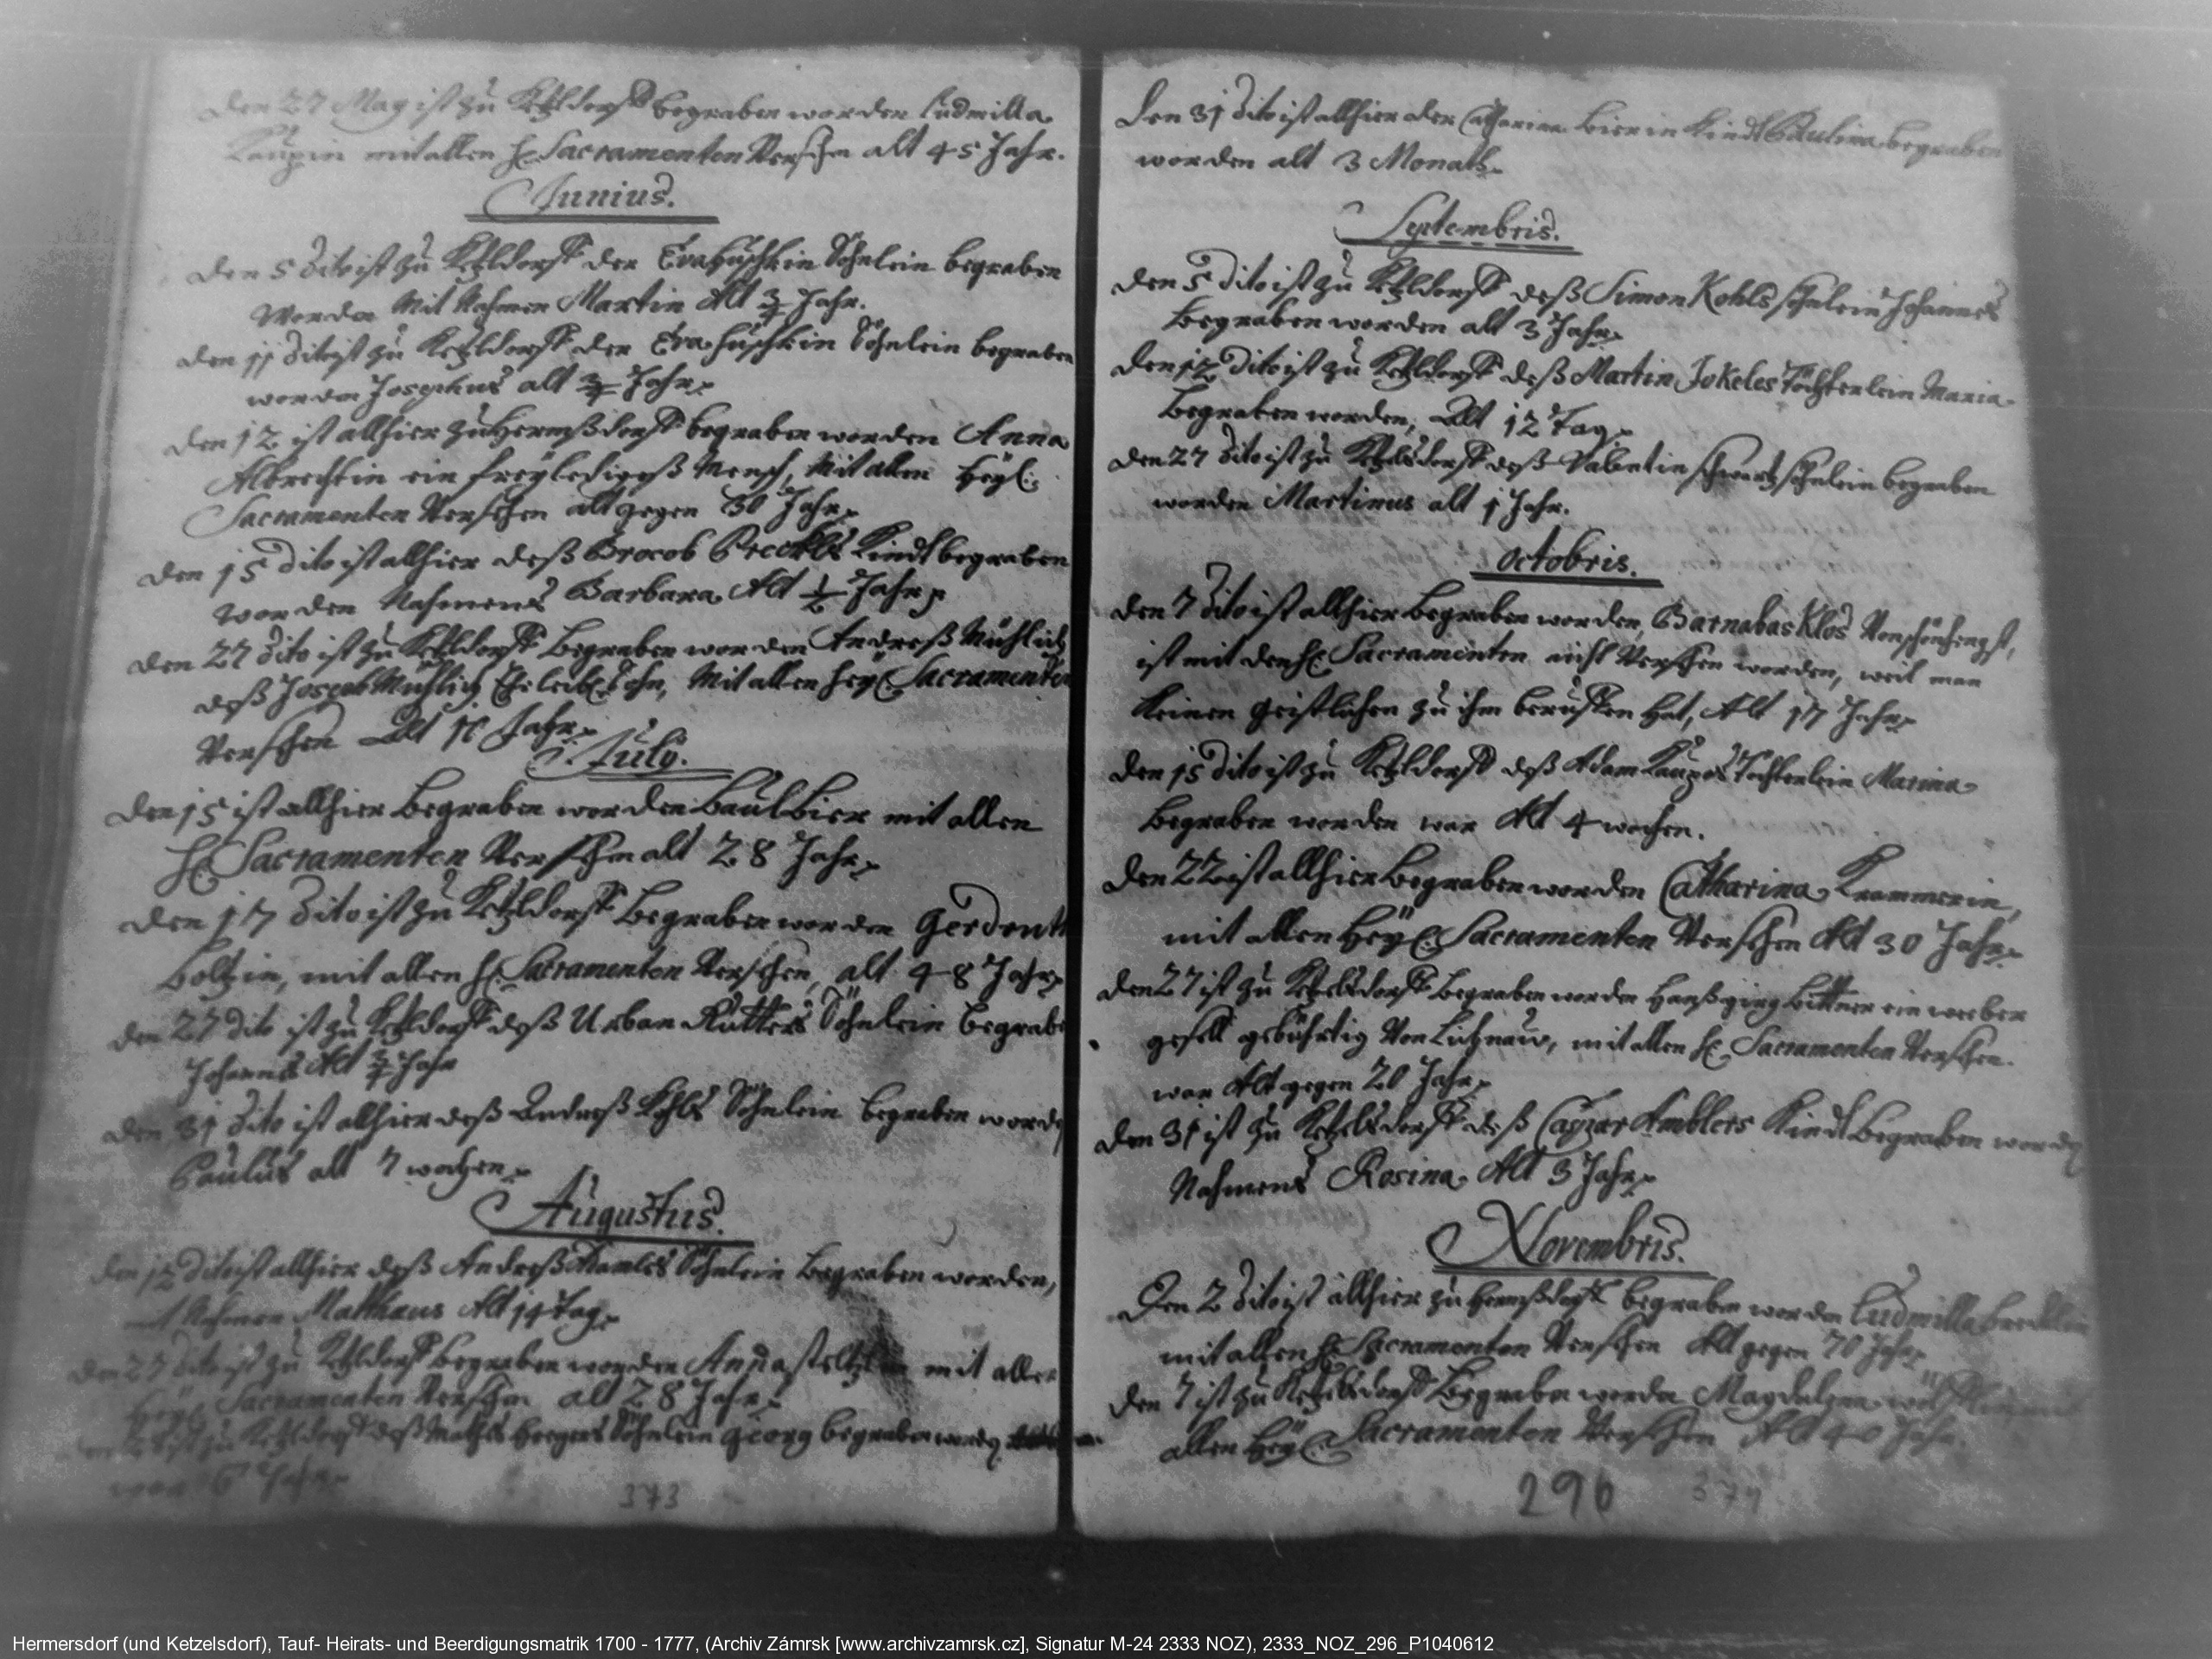 Den 27 May ist zu Ketzldorff begraben worden Ludmilla
Kaupin mit allen H. Sacramenten Versehen alt 45 Jahr.
Junius.
Den 5 dito ist zu Ketzldorff der Eva Huschkin Söhnlein begraben
Worden Mit Nahmen Martin Alt 3/4 Jahr.
Den 11 dito ist zu Ketzldorff der Eva Huschkin Söhnlein begraben
worden Josephus alt 3/4 Jahr.
Den 12 ist allhier zu Hermßdorff begraben worden Anna
Albrechtin ein freyledigeß Mensch, Mit allen Heyl:
Sacramenten Versehen alt gegen 30 Jahr.
Den 15 dito ist allhier deß Kindt begraben
worden Nahmens Barbara Alt 1/2 Jahr
Den 27 dito ist zu Ketzldorff Begraben worden Andreß Mühlich
deß Joseph Mühlich Eheleibl. Sohn, Mit allen Heyl. Sacramenten
Versehen Alt Jahr.
July.
Den 15 ist allhier Begraben worden Paul Bier mit allen
H. Sacramenten Versehen alt 28 Jahr.
Den 17 dito ist zu Ketzldorff Begraben worden
Boltzin, mit allen H. Sacramenten Versehen, alt 48 Jahr
Den 27 dito ist zu Ketzldorff deß Urban Rütters Söhnlein begrabe
Johannes Alt 3/4 Jahr
Den 31 dito ist allhier deß Andreß Kohls Söhnlein begraben worden
Paulus alt 7 wochen.
Augustus.
Den 12 dito ist allhier deß Andreß Söhnlein Begraben worden,
mit Nahmen Matthaus Alt 14 Tag.
Den 27 dito ist zu Ketzldorff begraben worden Anna mit allen
Heyl. Sacramenten Versehen alt 28 Jahr.
ist zu Ketzldorff deß Söhnlein Georg begraben
war 6 Jahr.
373
Den 31 dito ist allhier der Catharina Bierin Kindt Paulina begraben
worden alt 3 Monath.
Septembris.
Den 5 dito ist zu Ketzldorff deß Simon Kohls söhnlein Johannes
Begraben worden alt 3 Jahr.
Den 12 dito ist zu Ketzldorff deß Martin Jokeles Töchterlein Maria
Begraben worden, Alt 12 Tag.
Den 27 dito ist zu Ketzelsdorff deß Valentin schwartz söhnlein begraben
worden Martinus alt 1 Jahr.
Octobris.
Den 7 dito ist allhier Begraben worden, Barnabas Klos Von schönhengst,
ist mit den H. Sacramenten nicht Versehen worden, weil man
keinen geistlichen zu ihm beruffen hat, Alt 17 Jahr.
Den 15 dito ist zu Ketzldorff deß Adam Kaupes Töchterlein Marina
Begraben worden war Alt 4 wochen.
Den 22 ist allhier Begraben worden Catharina Krammerin,
mit allen Heyl. Sacramenten Versehen Alt 30 Jahr.
Den 27 ist zu Ketzelsdorff Begraben worden Hanß girg Bittner ein weeber
gesell gebührtig Von Lichnaw, mit allen H. Sacramenten Versehen.
war Alt gegen 20 Jahr.
Den 31 ist zu Ketzelsdorff deß Caspar Amblers Kindt Begraben worden
Nahmens Rosina Alt 3 Jahr.
Novembris.
Den 2 dito ist allhier zu Hermßdorff begraben worden Ludmilla
mit allen H. Sacramenten Versehen Alt gegen 70 Jahr
Den 7 ist zu Ketzelsdorff Begraben worden Magdalena
allen Heyl. Sacramenten Versehen Alt 40 Jahr.
296 374
Hermersdorf (und Ketzelsdorf), Tauf- Heirats- und Beerdigungsmatrik 1700 - 1777, (Archiv Zámrsk [www.archivzamrsk.cz], Signatur M-24 2333 NOZ), 2333_NOZ_296_P1040612